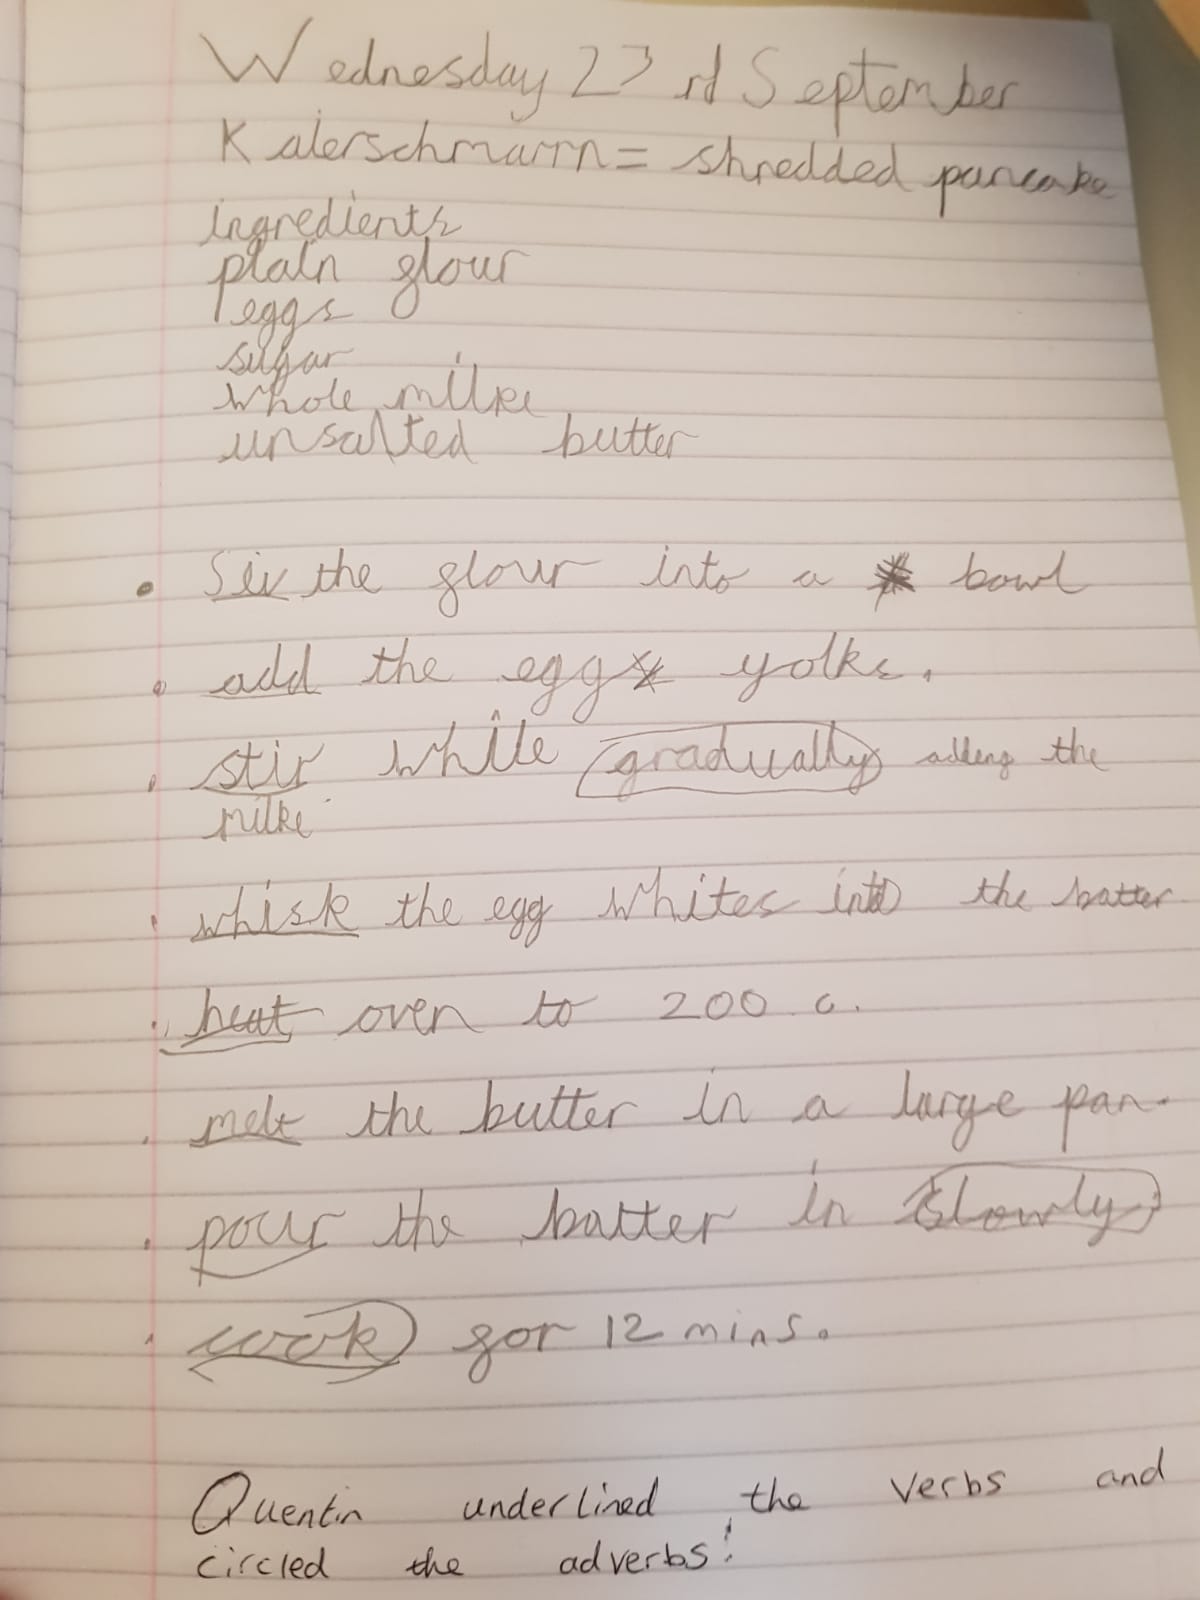 Wednesday 23rd September
Kaierschmarrn = shredded pancake
ingredients
plain flour
eggs
sugar
whole milke
unsalted butter
• Siv the flour into a bowl
• add the egg yolks.
• stir while gradually adding the
milke
• whisk the egg whites into the batter
• heat oven to 200 c.
• melt the butter in a large pan.
• pour the batter in slowly
• cook for 12 mins.
Quentin underlined the verbs and
circled the adverbs!